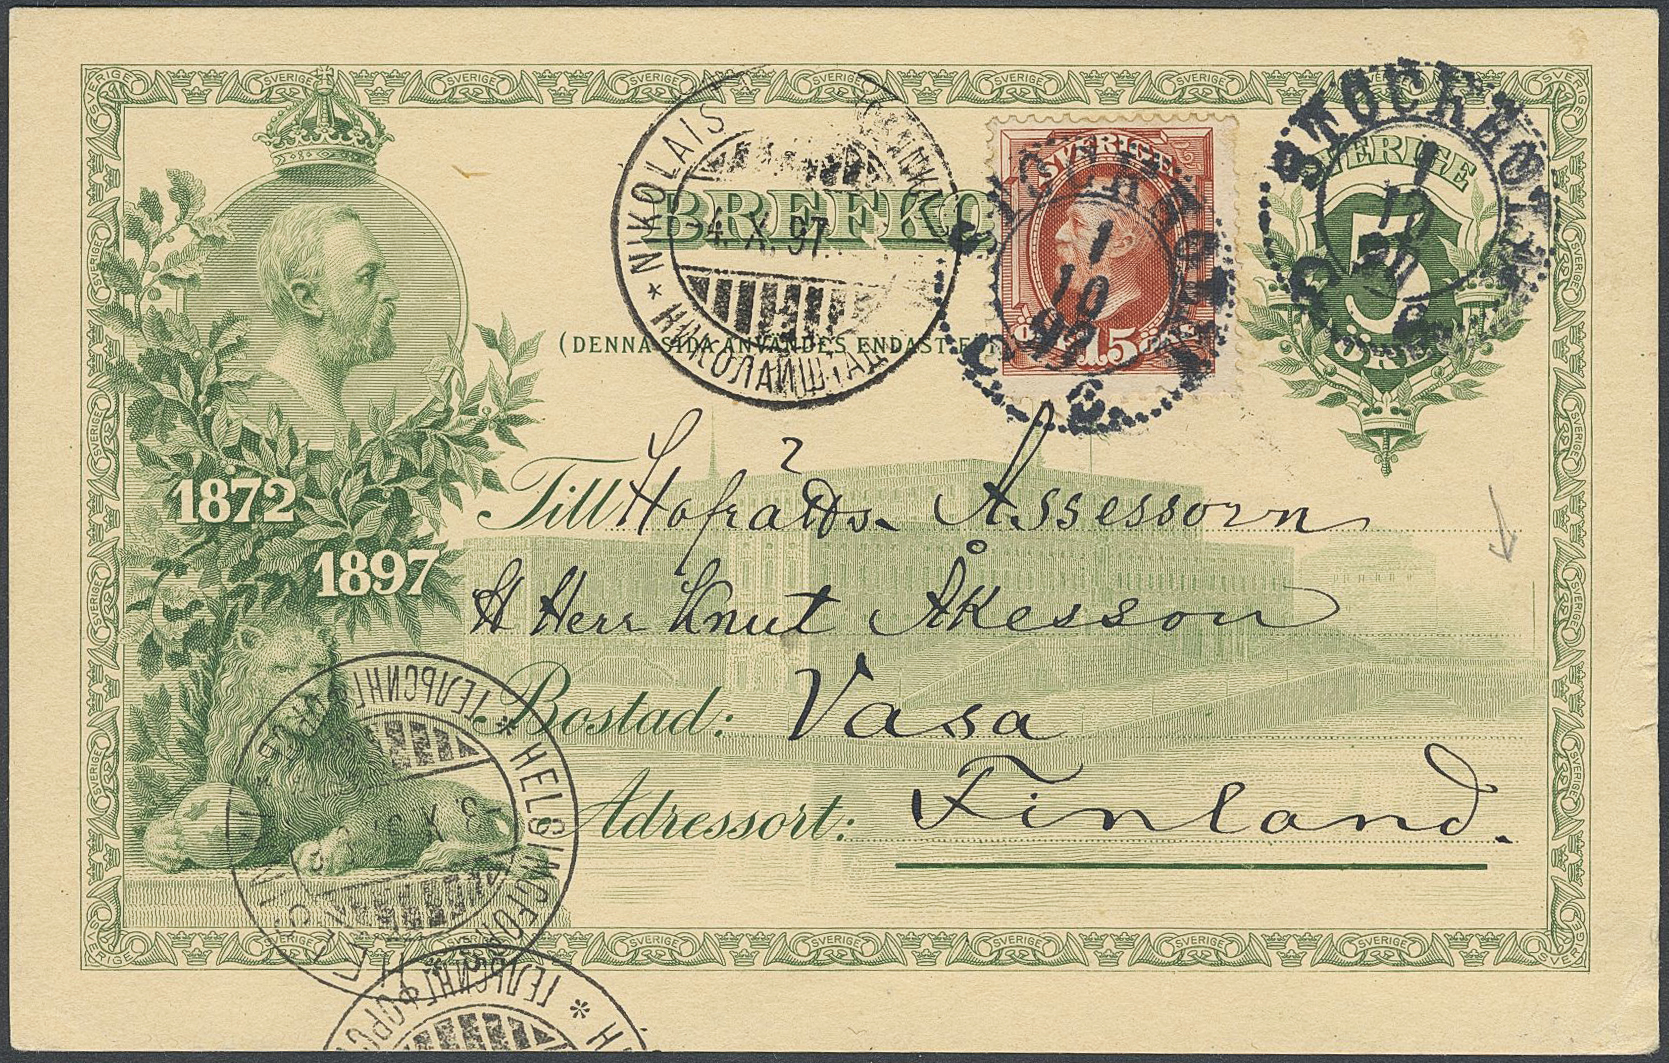 SVERIGE
BREFKO
(DENNA SIDA ANVÄNDES ENDAST F
NIKOLAIS
4.X.97.
* НИКОЛАИШТАД
SVERIGE
15
STOCKHOLM
1
10
97
6
STOCKHOLM
1
10
SVERIGE
5
ÖRE
1872
1897
Till Hofrätts Assessorn
H Herr Knut Åkesson
Bostad: Vasa
Adressort: Finland.
* HELSINGFORS
ГЕЛЬСИНГФОРСЪ
3.X
ГЕЛЬСИНГФОРС
* H